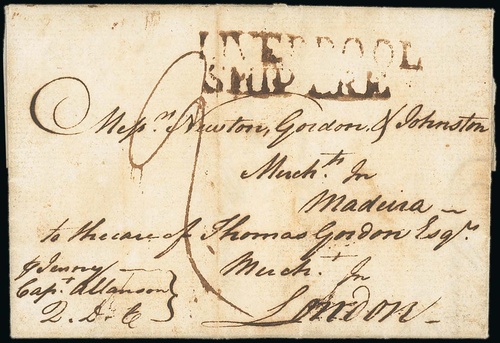 LIVERPOOL
SHIP LRE
Messrs. Newton, Gordon, & Johnston
Mercht.s In
Madeira
to the care of Thomas Gordon Esqr.
Mercht. In
London
p Jenny
Capt. Allanson
Q. D. C.